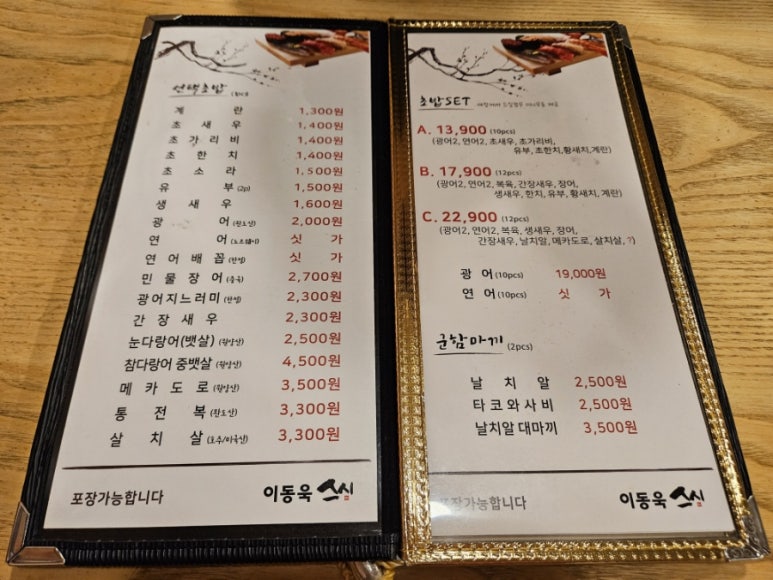 선택초밥 (1pc)
계 란 1,300원
초 새 우 1,400원
초 가 리 비 1,400원
초 한 치 1,400원
초 소 라 1,500원
유 부 (2p) 1,500원
생 새 우 1,600원
광 어 (완도산) 2,000원
연 어 (노르웨이) 싯 가
연 어 배 꼽 싯 가
민 물 장 어 (중국) 2,700원
광 어 지 느 러 미 2,300원
간 장 새 우 2,300원
눈다랑어(뱃살) (원양산) 2,500원
참다랑어 중뱃살 (원양산) 4,500원
메 카 도 로 (원양산) 3,500원
통 전 복 (완도산) 3,300원
살 치 살 (호주/미국산) 3,300원
포장가능합니다
이동욱 스시
초밥SET
A. 13,900 (10pcs)
(광어2, 연어2, 초새우, 초가리비,
유부, 초한치, 황새치, 계란)
B. 17,900 (12pcs)
(광어2, 연어2, 복육, 간장새우, 장어,
생새우, 한치, 유부, 황새치, 계란)
C. 22,900 (12pcs)
(광어2, 연어2, 복육, 생새우, 장어,
간장새우, 날치알, 메카도로, 살치살, ?)
광 어 (10pcs) 19,000원
연 어 (10pcs) 싯 가
군함마끼 (2pcs)
날 치 알 2,500원
타 코 와 사 비 2,500원
날치알 대마끼 3,500원
포장가능합니다
이동욱 스시